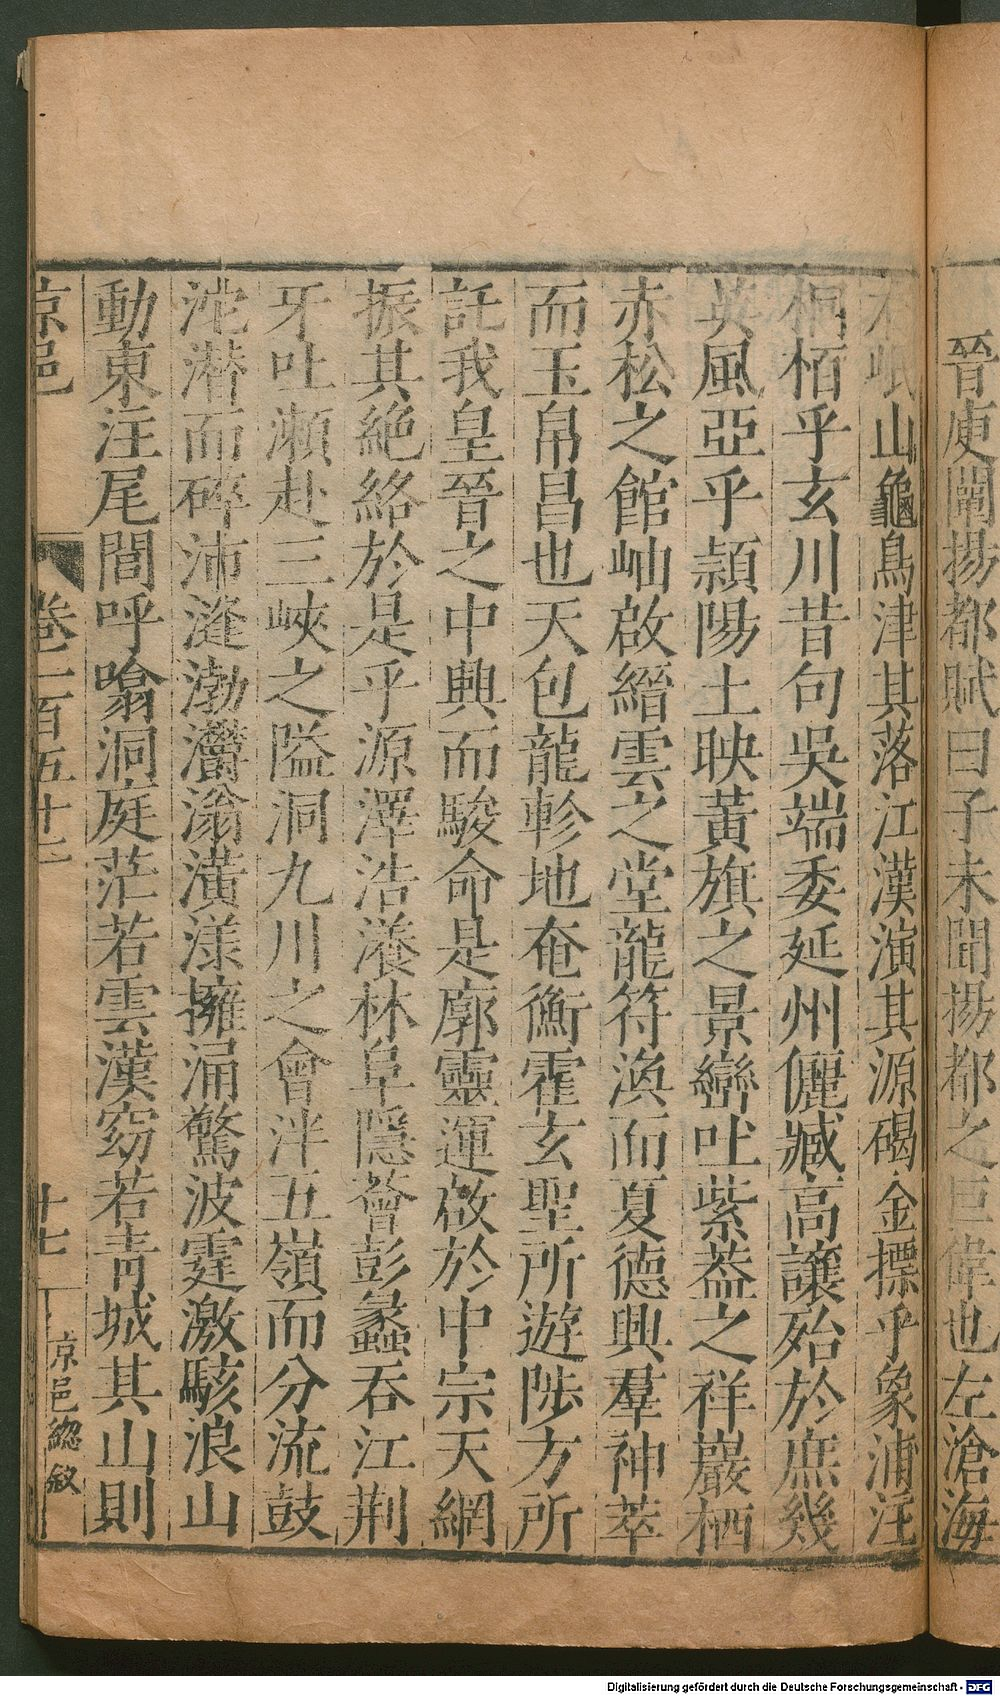 晉庾闡揚都賦曰子未聞揚都之巨偉也左滄海
右岷山龜鳥津其落江漢演其源碣金摽乎象浦注
桐栢乎玄川昔句吳端委延州儷臧高讓殆於庶幾
英風亞乎頴陽土映黃旗之景巒吐紫葢之祥巖栖
赤松之館岫啟縉雲之堂龍符渙而夏德興羣神萃
而玉帛昌也天包龍軫地奄衡霍玄聖所遊陟方所
託我皇晉之中興而駿命是廓靈運啟於中宗天網
振其絶絡於是乎源澤浩瀁林阜隱薈彭蠡吞江荆
牙吐瀬赴三峽之隘洞九川之會泮五嶺而分流鼓
沱潜而碎沛漨渤灪滃潢漾擁涌驚波霆激駭浪山
動東注尾閭呼噏洞庭茫若雲漢窈若靑城其山則
京邑 卷一百五十二 十七 京邑緫叙
Digitalisierung gefördert durch die Deutsche Forschungsgemeinschaft - DFG